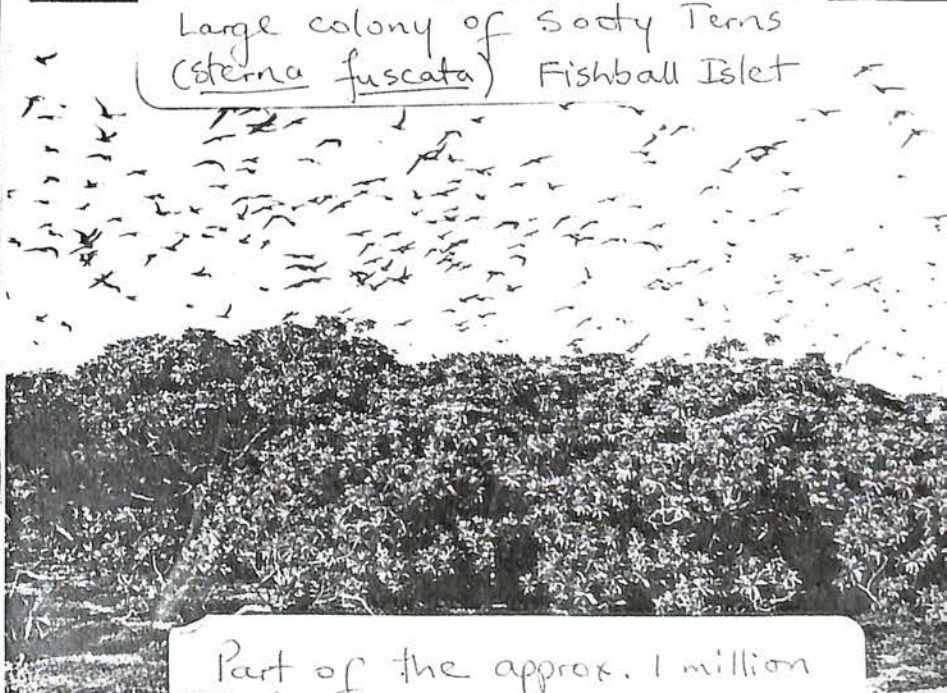 Large colony of Sooty Terns
(Sterna fuscata) Fishball Islet
Part of the approx. 1 million